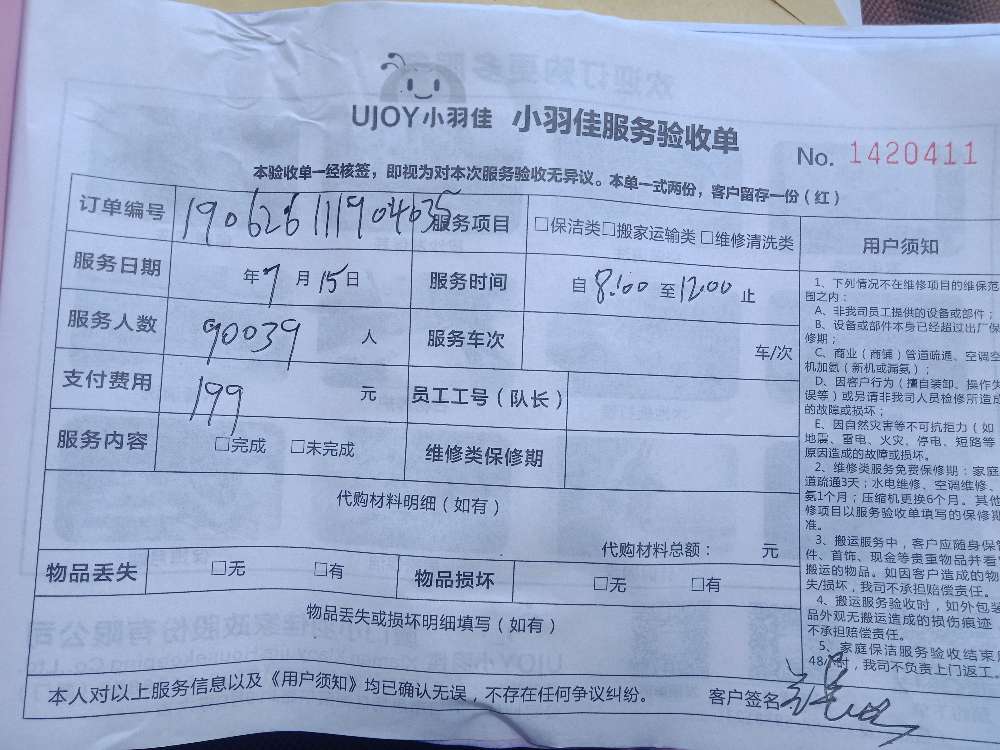 UJOY小羽佳 小羽佳服务验收单
No. 1420411
本验收单一经核签，即视为对本次服务验收无异议。本单一式两份，客户留存一份（红）
订单编号 190626111904635 服务项目 □保洁类□搬家运输类□维修清洗类
服务日期 年7月15日 服务时间 自8:00至12:00止
服务人数 90039 人 服务车次 车/次
支付费用 199 元 员工工号（队长）
服务内容 □完成 □未完成 维修类保修期
代购材料明细（如有）
代购材料总额： 元
物品丢失 □无 □有 物品损坏 □无 □有
物品丢失或损坏明细填写（如有）
本人对以上服务信息以及《用户须知》均已确认无误，不存在任何争议纠纷。 客户签名
用户须知
1、下列情况不在维修项目的维保范
围之内：
A、非我司员工提供的设备或部件；
B、设备或部件本身已经超过出厂保
修期；
C、商业（商铺）管道疏通、空调空
机加氨（新机或漏氨）；
D、因客户行为（擅自装卸、操作失
误等）或另请非我司人员检修所造成
的故障或损坏；
E、因自然灾害等不可抗拒力（如
地震、雷电、火灾、停电、短路等
原因造成的故障或损坏。
2、维修类服务免费保修期：家庭
道疏通3天；水电维修、空调维修、
氨1个月；压缩机更换6个月。其他
修项目以服务验收单填写的保修期
准。
3、搬运服务中，客户应随身保管
件、首饰、现金等贵重物品并看管
搬运的物品。如因客户造成的物
失/损坏，我司不承担赔偿责任。
4、搬运服务验收时，如外包装
品外观无搬运造成的损伤痕迹
不承担赔偿责任。
5、家庭保洁服务验收结束后
48小时，我司不负责上门返工。